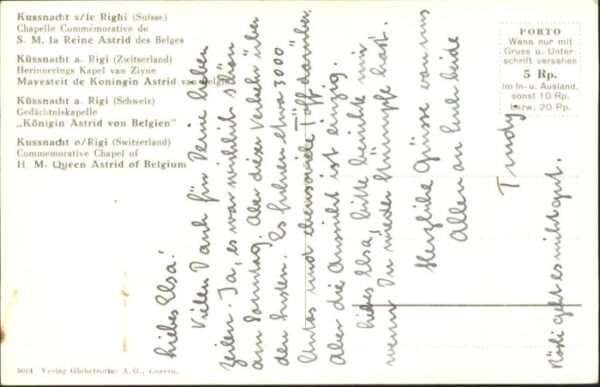 Kussnacht s/le Righi (Suisse)
Chapelle Commémorative de
S. M. la Reine Astrid des Belges
Küssnacht a. Rigi (Zwitserland)
Herinnerings Kapel van Zijne
Mayesteit de Koningin Astrid van Belgien
Küssnacht a. Rigi (Schweiz)
Gedächtniskapelle
„Königin Astrid von Belgien"
Kussnacht o/Rigi (Switzerland)
Commemorative Chapel of
H. M. Queen Astrid of Belgium
PORTO
Wenn nur mit
Gruss u. Unter-
schrift versehen
5 Rp.
im In- u. Ausland,
sonst 10 Rp.
bzw. 20 Rp.
Liebes Elsa!
Vielen Dank für Deine lieben
Zeilen. Ja, es war wirklich schön
am Sonntag. Aber dieser Verkehr über
den Susten. Es fuhren etwa 3000
Autos und ebensoviele Töff darüber.
Aber die Aussicht ist einzig.
Liebes Elsa, bitte berichte mir
wenn Du wieder Strümpfe hast.
Herzliche Grüsse von uns
Allen an Euch beide
Trudy.
Rösli geht es nicht gut.
5014 Verlag Globetrotter A. G., Luzern.